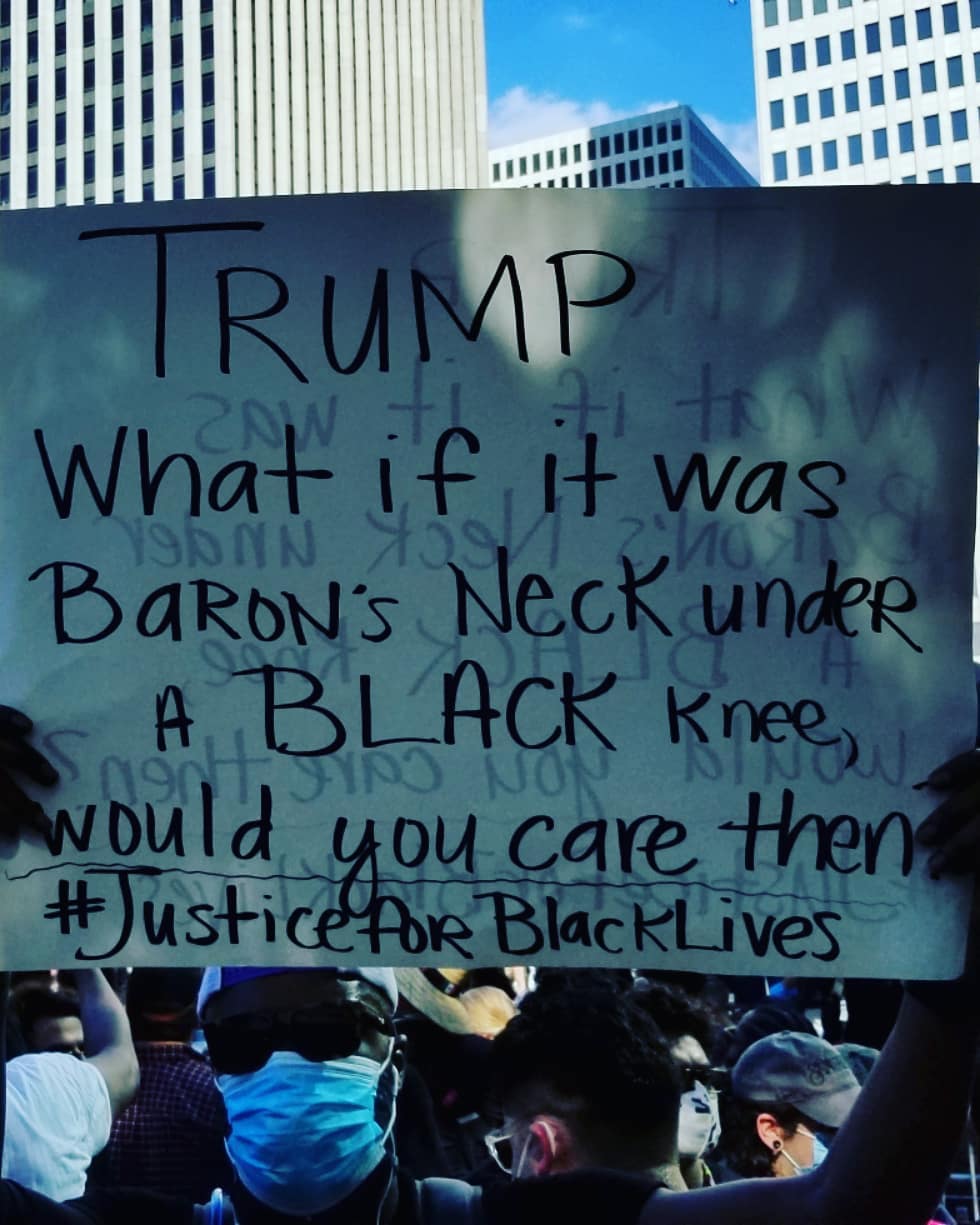 TRUMP
What if it was
BaRON's Neck undeR
A BLACK knee,
would you care then
#Justice foR BlackLives